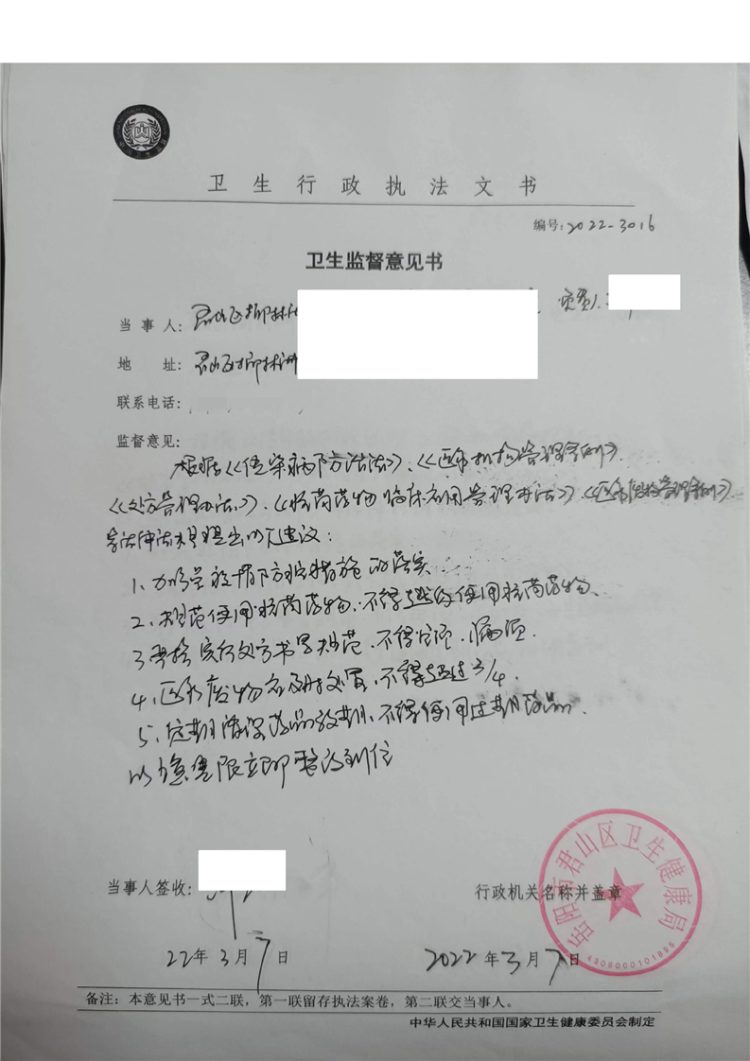 卫生行政执法文书
编号:2022-3016
卫生监督意见书
当事人: 君山区柳林 负责人:
地址: 君山区柳林洲
联系电话:
监督意见:
根据《传染病防治法》、《医疗机构管理条例》
《处方管理办法》、《抗菌药物临床应用管理办法》《医疗废物管理条例》
等法律法规提出以下建议:
1、加强疫情防控措施的落实
2、规范使用抗菌药物、不得越级使用抗菌药物、
3 严格实行处方书写规范、不得空项、漏项.
4、医疗废物应及时处置、不得超过3/4.
5、定期清理药品效期、不得使用过期药品.
以上意见限立即整改到位
当事人签收:
行政机关名称并盖章
岳阳市君山区卫生健康局
22年3月7日
2022年3月7日
备注:本意见书一式二联,第一联留存执法案卷,第二联交当事人。
中华人民共和国国家卫生健康委员会制定